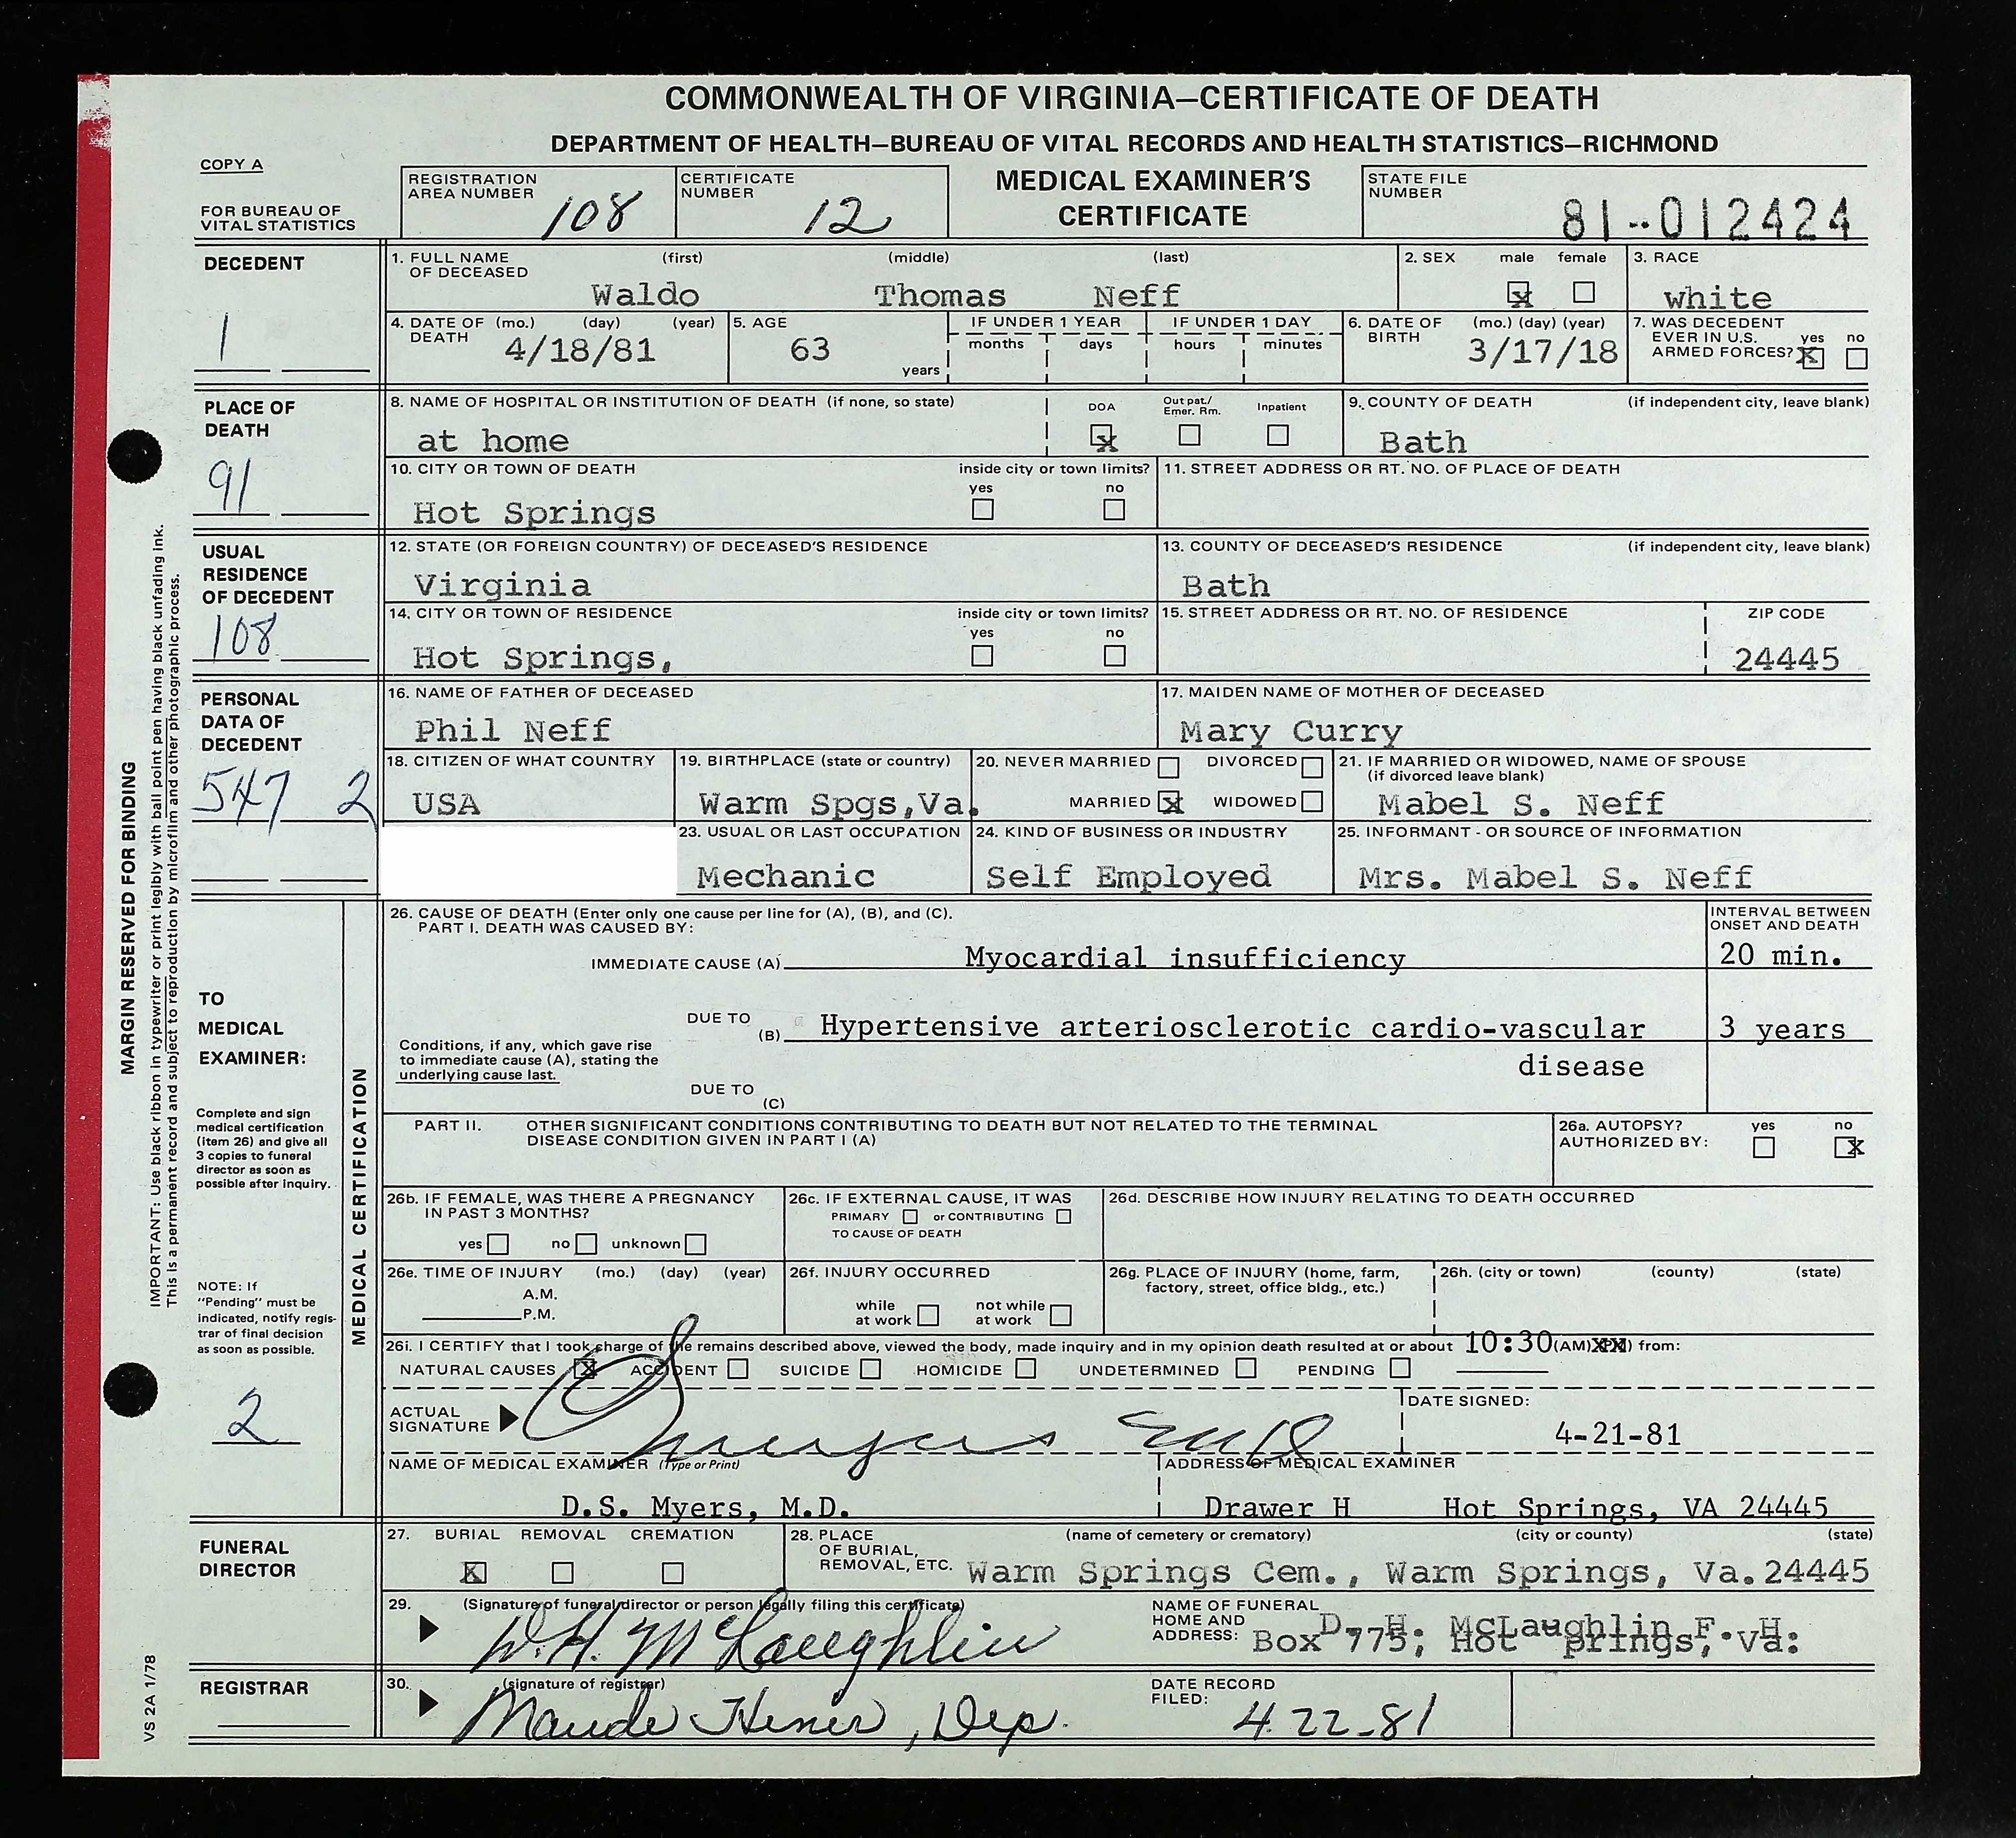 COMMONWEALTH OF VIRGINIA—CERTIFICATE OF DEATH
DEPARTMENT OF HEALTH—BUREAU OF VITAL RECORDS AND HEALTH STATISTICS—RICHMOND
COPY A
FOR BUREAU OF VITAL STATISTICS
REGISTRATION AREA NUMBER 108
CERTIFICATE NUMBER 12
MEDICAL EXAMINER'S CERTIFICATE
STATE FILE NUMBER 81--012424
DECEDENT
1
1. FULL NAME OF DECEASED (first) (middle) (last)
Waldo Thomas Neff
2. SEX male female
x
3. RACE
white
4. DATE OF DEATH (mo.) (day) (year)
4/18/81
5. AGE
63 years
IF UNDER 1 YEAR
months days
IF UNDER 1 DAY
hours minutes
6. DATE OF BIRTH (mo.) (day) (year)
3/17/18
7. WAS DECEDENT EVER IN U.S. ARMED FORCES? yes no
X
PLACE OF DEATH
91
8. NAME OF HOSPITAL OR INSTITUTION OF DEATH (if none, so state)
at home
DOA Out pat./ Emer. Rm. Inpatient
x
9. COUNTY OF DEATH (if independent city, leave blank)
Bath
10. CITY OR TOWN OF DEATH inside city or town limits? yes no
Hot Springs
11. STREET ADDRESS OR RT. NO. OF PLACE OF DEATH
USUAL RESIDENCE OF DECEDENT
108
12. STATE (OR FOREIGN COUNTRY) OF DECEASED'S RESIDENCE
Virginia
13. COUNTY OF DECEASED'S RESIDENCE (if independent city, leave blank)
Bath
14. CITY OR TOWN OF RESIDENCE inside city or town limits? yes no
Hot Springs,
15. STREET ADDRESS OR RT. NO. OF RESIDENCE
ZIP CODE
24445
PERSONAL DATA OF DECEDENT
547 2
16. NAME OF FATHER OF DECEASED
Phil Neff
17. MAIDEN NAME OF MOTHER OF DECEASED
Mary Curry
18. CITIZEN OF WHAT COUNTRY
USA
19. BIRTHPLACE (state or country)
Warm Spgs,Va.
20. NEVER MARRIED DIVORCED
MARRIED X WIDOWED
21. IF MARRIED OR WIDOWED, NAME OF SPOUSE (if divorced leave blank)
Mabel S. Neff
23. USUAL OR LAST OCCUPATION
Mechanic
24. KIND OF BUSINESS OR INDUSTRY
Self Employed
25. INFORMANT - OR SOURCE OF INFORMATION
Mrs. Mabel S. Neff
MARGIN RESERVED FOR BINDING
IMPORTANT: Use black ribbon in typewriter or print legibly with ball point pen having black unfading ink.
This is a permanent record and subject to reproduction by microfilm and other photographic process.
TO MEDICAL EXAMINER:
Complete and sign medical certification (item 26) and give all 3 copies to funeral director as soon as possible after inquiry.
NOTE: If "Pending" must be indicated, notify registrar of final decision as soon as possible.
2
MEDICAL CERTIFICATION
26. CAUSE OF DEATH (Enter only one cause per line for (A), (B), and (C).
PART I. DEATH WAS CAUSED BY:
INTERVAL BETWEEN ONSET AND DEATH
IMMEDIATE CAUSE (A) Myocardial insufficiency
20 min.
Conditions, if any, which gave rise to immediate cause (A), stating the underlying cause last.
DUE TO (B) Hypertensive arteriosclerotic cardio-vascular
disease
3 years
DUE TO (C)
PART II. OTHER SIGNIFICANT CONDITIONS CONTRIBUTING TO DEATH BUT NOT RELATED TO THE TERMINAL DISEASE CONDITION GIVEN IN PART I (A)
26a. AUTOPSY? yes no
AUTHORIZED BY: X
26b. IF FEMALE, WAS THERE A PREGNANCY IN PAST 3 MONTHS?
yes no unknown
26c. IF EXTERNAL CAUSE, IT WAS
PRIMARY or CONTRIBUTING
TO CAUSE OF DEATH
26d. DESCRIBE HOW INJURY RELATING TO DEATH OCCURRED
26e. TIME OF INJURY (mo.) (day) (year)
A.M.
P.M.
26f. INJURY OCCURRED
while at work not while at work
26g. PLACE OF INJURY (home, farm, factory, street, office bldg., etc.)
26h. (city or town) (county) (state)
26i. I CERTIFY that I took charge of the remains described above, viewed the body, made inquiry and in my opinion death resulted at or about 10:30 (AM) XX from:
NATURAL CAUSES X ACCIDENT SUICIDE HOMICIDE UNDETERMINED PENDING
ACTUAL SIGNATURE
DATE SIGNED:
4-21-81
NAME OF MEDICAL EXAMINER (Type or Print)
D.S. Myers, M.D.
ADDRESS OF MEDICAL EXAMINER
Drawer H Hot Springs, VA 24445
FUNERAL DIRECTOR
27. BURIAL REMOVAL CREMATION
X
28. PLACE OF BURIAL, REMOVAL, ETC. (name of cemetery or crematory) (city or county) (state)
Warm Springs Cem., Warm Springs, Va.24445
29. (Signature of funeral director or person legally filing this certificate)
D.H. McLaughlin
NAME OF FUNERAL HOME AND ADDRESS: D. H. McLaughlin F. H.
Box 775, Hot Springs, Va.
REGISTRAR
30. (signature of registrar)
Maude Hiner, Dep.
DATE RECORD FILED:
4-22-81
VS 2A 1/78